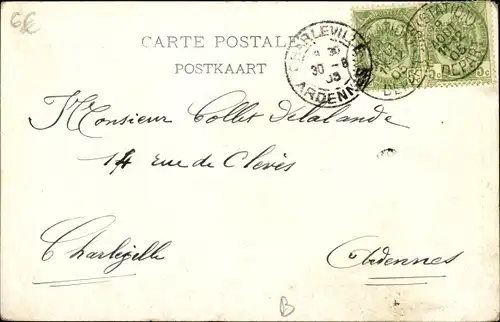 6€
CARTE POSTALE
POSTKAART
CHARLEVILLE
30 - 8
05
ARDENNES
Monsieur Collet Delalande
14 rue de Clèves
Charleville
Ardennes
B